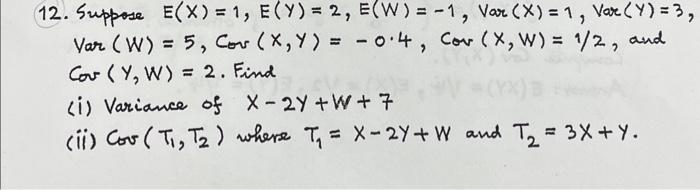 12. Suppose E(X) = 1, E(Y) = 2, E(W) = -1, Var(X) = 1, Var(Y) = 3,
Var(W) = 5, Cov(X,Y) = -0.4, Cov(X,W) = 1/2, and
Cov(Y,W) = 2. Find
(i) Variance of X-2Y+W+7
(ii) Cov(T₁,T₂) where T₁ = X-2Y+W and T₂ = 3X+Y.